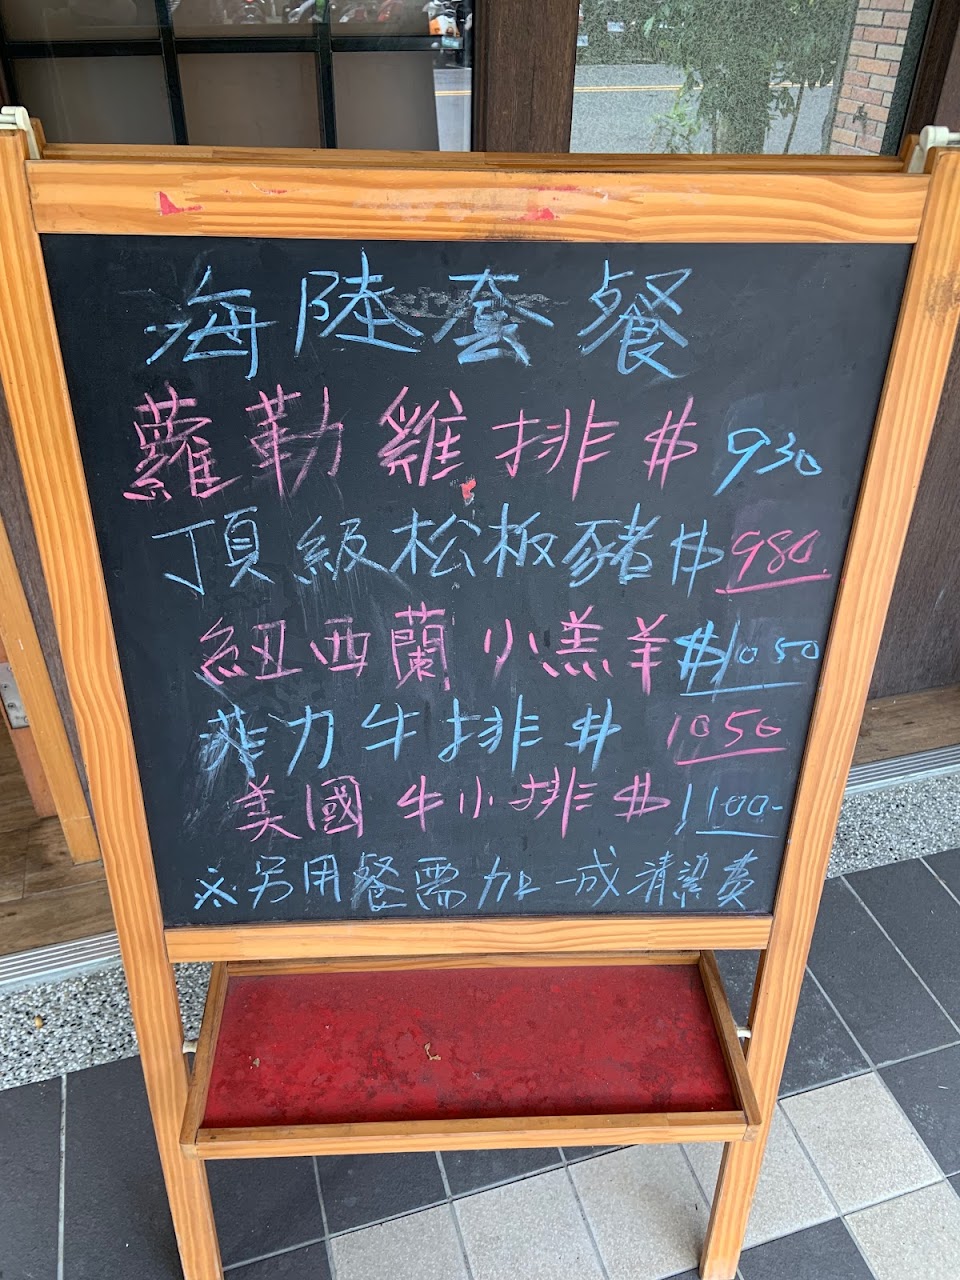 海陸套餐
蘿勒雞排 $ 930
頂級松板豬 $ 980
紐西蘭小羔羊 $1050
菲力牛排 $ 1050
美國牛小排 $ 1100-
※另用餐需加一成清潔費